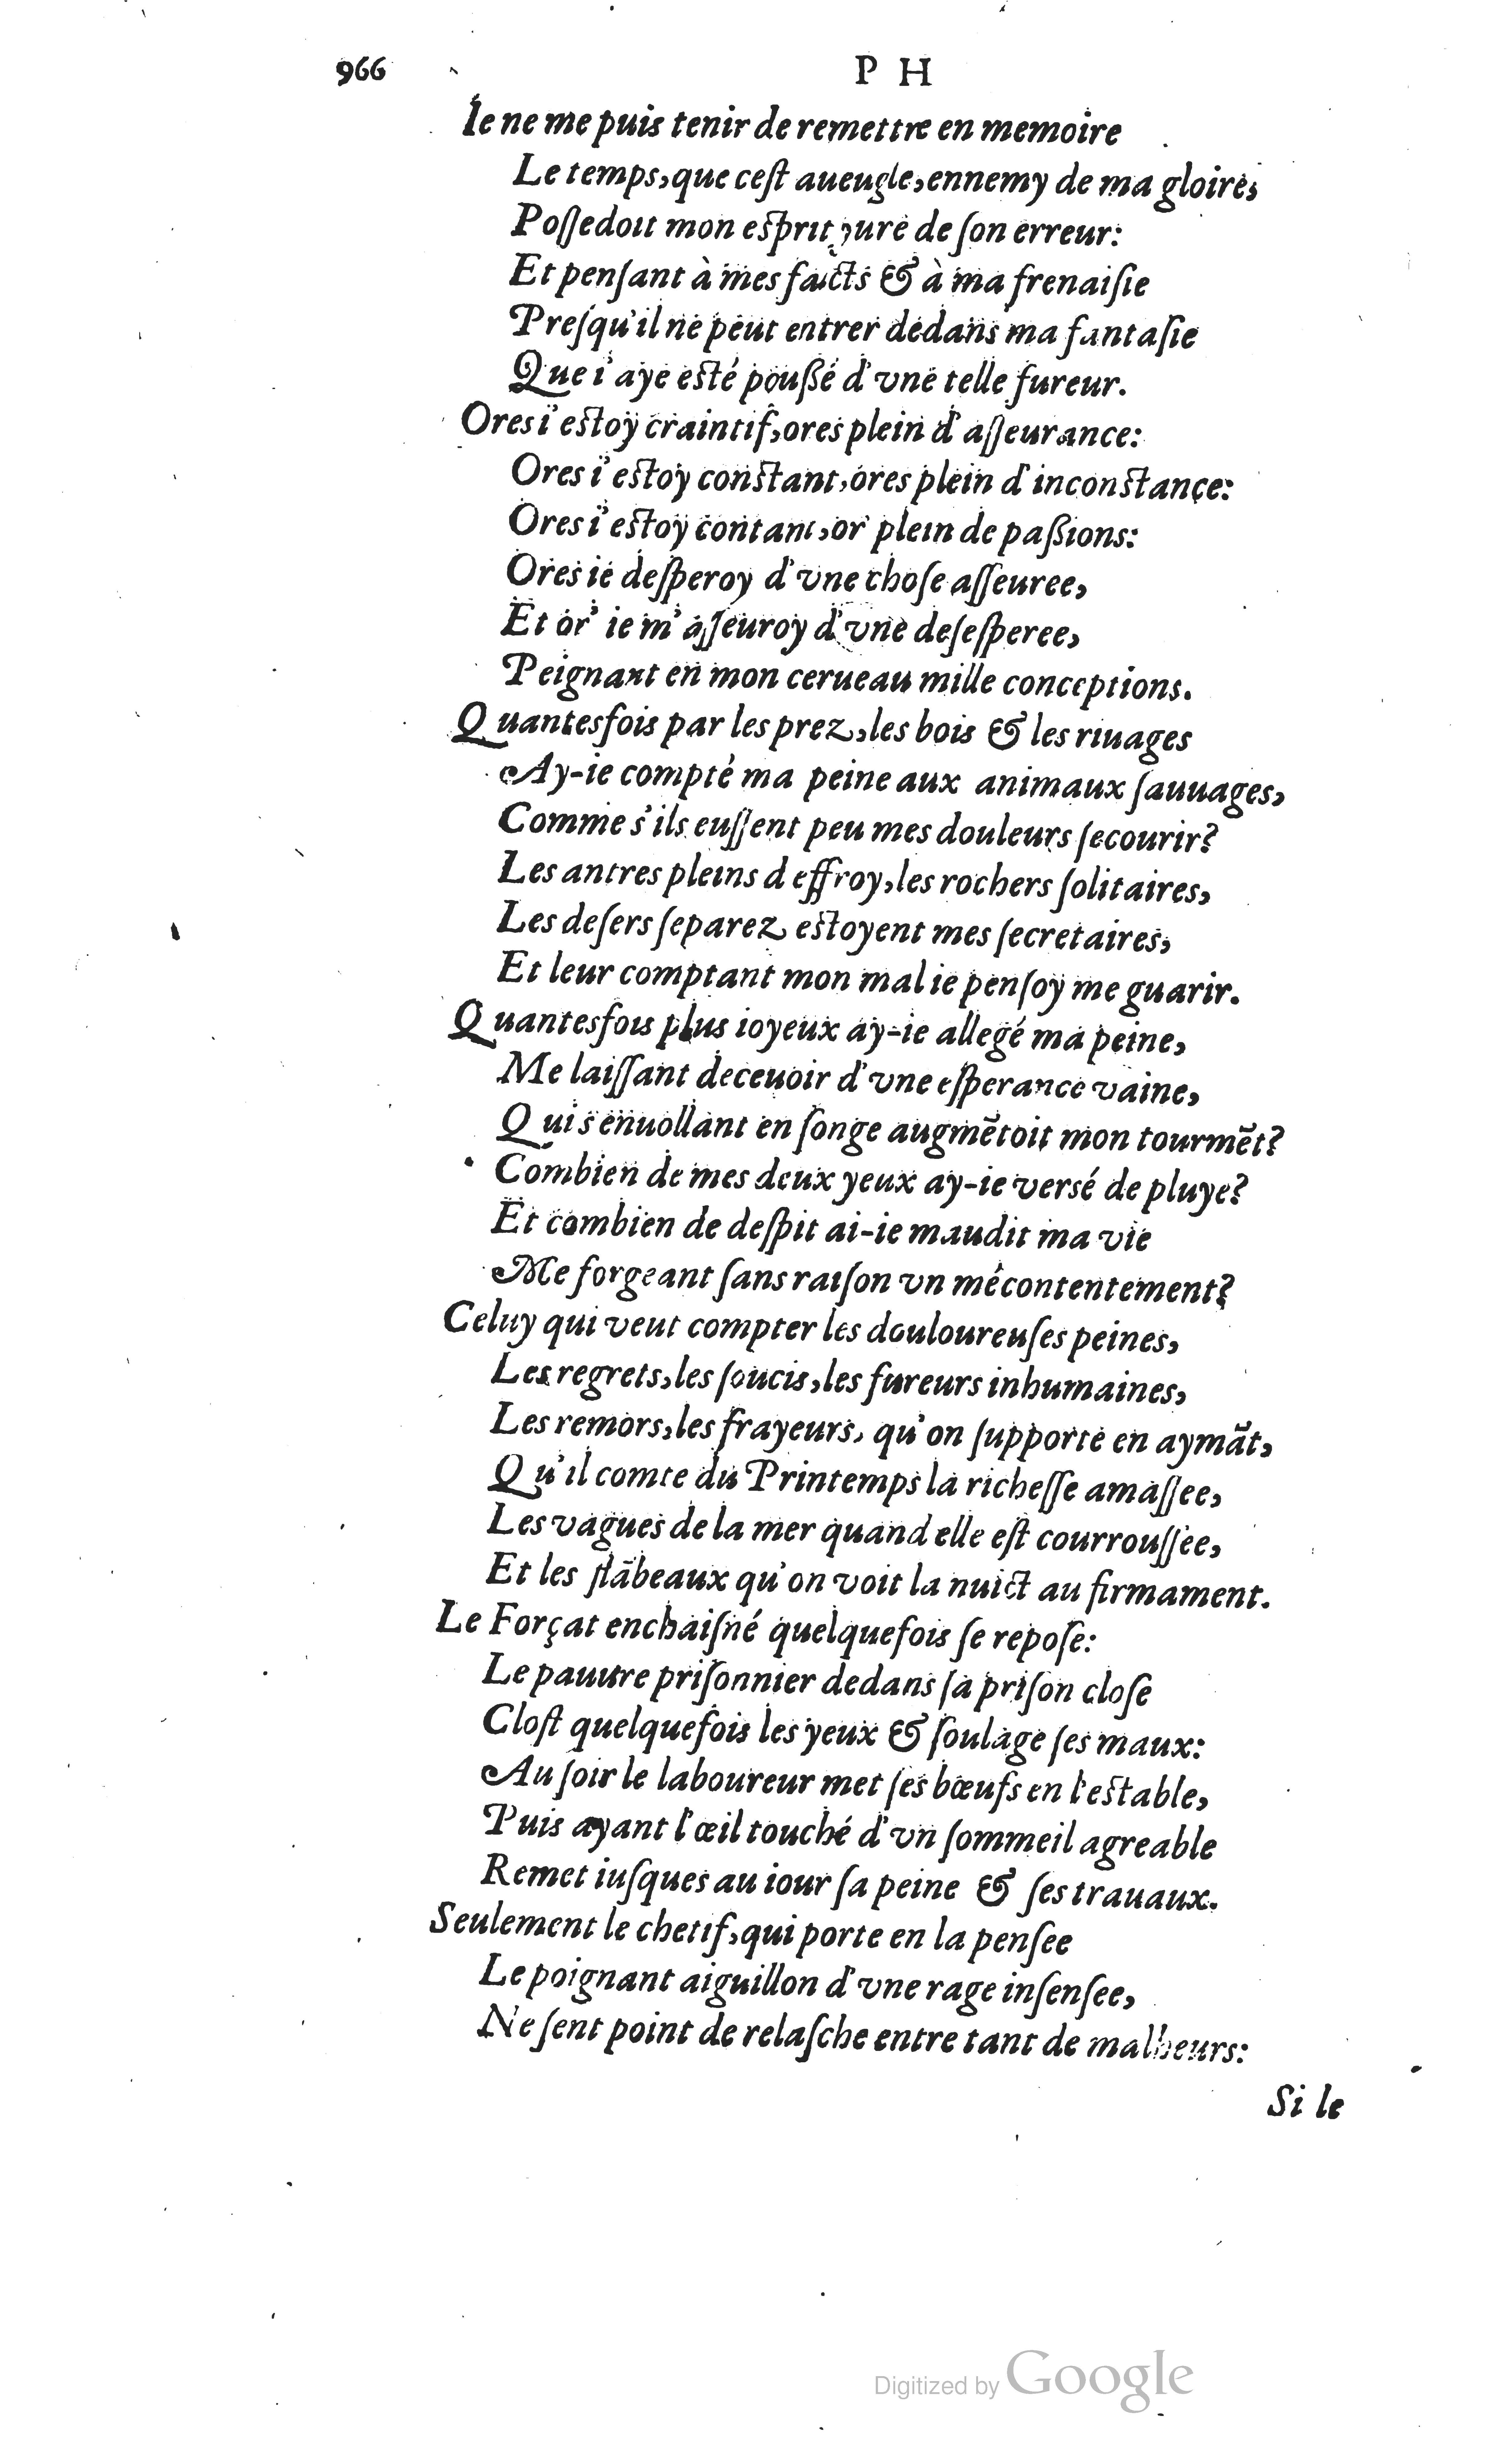 966 P H
Ie ne me puis tenir de remettre en memoire
Le temps, que cest aueugle, ennemy de ma gloire,
Possedoit mon esprit yure de son erreur:
Et pensant à mes faicts & à ma frenaisie
Presqu'il ne peut entrer dedans ma fantasie
Que i'aye esté poußé d'vne telle fureur.
Ores i'estoy craintif, ores plein d'asseurance:
Ores i'estoy constant, ores plein d'inconstance:
Ores i'estoy contant, or' plein de paßions:
Ores ie desperoy d'vne chose asseuree,
Et or' ie m'asseuroy d'vne desesperee,
Peignant en mon cerueau mille conceptions.
Quantesfois par les prez, les bois & les riuages
Ay-ie compté ma peine aux animaux sauuages,
Comme s'ils eussent peu mes douleurs secourir?
Les antres pleins d effroy, les rochers solitaires,
Les desers separez estoyent mes secretaires,
Et leur comptant mon mal ie pensoy me guarir.
Quantesfois plus ioyeux ay-ie allegé ma peine,
Me laissant deceuoir d'vne esperance vaine,
Qui s'enuollant en songe augmẽtoit mon tourmẽt?
Combien de mes deux yeux ay-ie versé de pluye?
Et combien de despit ai-ie maudit ma vie
Me forgeant sans raison vn mécontentement?
Celuy qui veut compter les douloureuses peines,
Les regrets, les soucis, les fureurs inhumaines,
Les remors, les frayeurs, qu'on supporte en aymãt,
Qu'il comte du Printemps la richesse amassee,
Les vagues de la mer quand elle est courroussee,
Et les flãbeaux qu'on voit la nuict au firmament.
Le Forçat enchaisné quelquefois se repose:
Le pauure prisonnier dedans sa prison close
Clost quelquefois les yeux & soulage ses maux:
Au soir le laboureur met ses bœufs en l'estable,
Puis ayant l'œil touché d'vn sommeil agreable
Remet iusques au iour sa peine & ses trauaux.
Seulement le chetif, qui porte en la pensee
Le poignant aiguillon d'vne rage insensee,
Ne sent point de relasche entre tant de malheurs:
Si le
Digitized by Google